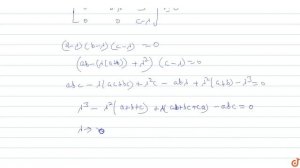 0 0 c-λ
(a-λ)(b-λ)(c-λ) = 0
(ab-(λ(a+b)) + λ²) (c-λ) = 0
abc - λ(ac+bc) + λ²c - abλ + λ²(a+b) - λ³ = 0
λ³ - λ²(a+b+c) + λ(ab+bc+ca) - abc = 0
λ →